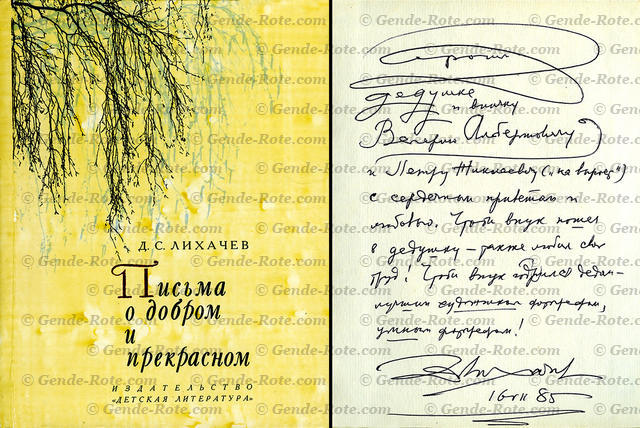 Д. С. ЛИХАЧЕВ
Письма
о добром
и
прекрасном
ИЗДАТЕЛЬСТВО
«ДЕТСКАЯ ЛИТЕРАТУРА»
дедушке
и внуку
Валерию Альбертовичу
и Петру Николаевичу
с сердечным приветом и
любовью. Чтобы внук пошел
в дедушку – также любил свой
труд! Чтобы внук гордился дедом –
лучшим художником фотографом,
умным фотографом!
85
© Gende-Rote.com